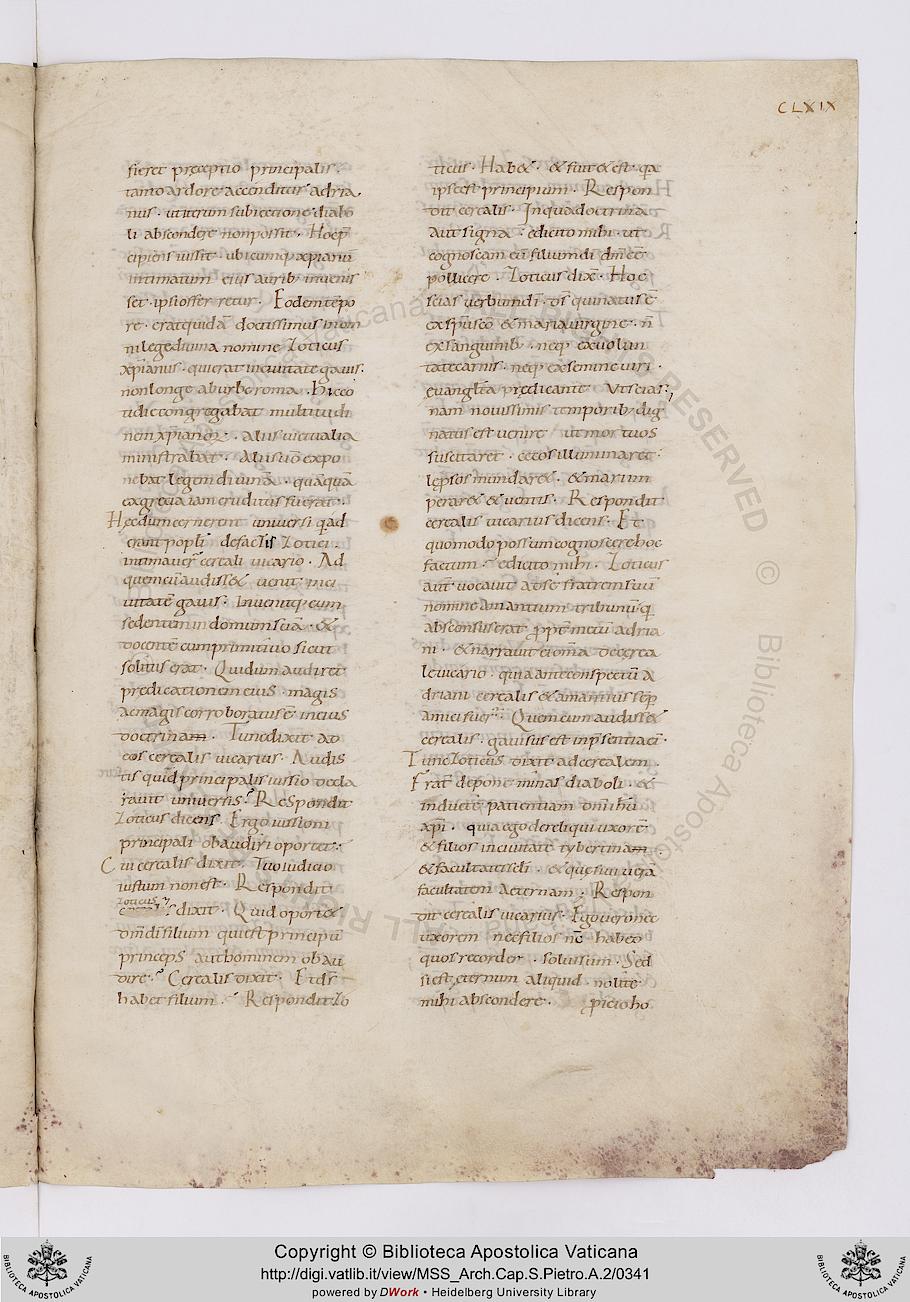 CLXIX
fieret preceptio principalis.
tanto ardore accenditur adria
nus. ut iterum subiectione diabo
li abscondere non possit. Hoc p̄
cipiens iussit. ubicumq; xp̄ianū
intimatum eius aurib; inuenis
set. ipsi offerretur. Eodem tēpo
re. erat quidā doctissimus in om
ni lege diuina nomine Zoticus
xp̄ianus. qui erat in ciuitate gauis.
non longe ab urbe roma. Hic co
tidie congregabat multitudi
nem xp̄ianoꝝ. aliis uictualia
ministrabat. aliis uō expo
nebat legem diuinā. quāquā
ex greca iam eruditus fuerat.
Hęc dum cernerent uniuersi q, ad
erant popli de factis Zotici.
intimauer̄ cereali uicario. Ad
quem cū audisset uenit in ci
uitatē gauis. Inuenitq; eum
sedentem in domum suā. &
docentē cum primitiuo sicut
solitus erat. Qui dum audiret
predicationem eius. magis
ac magis corroboratus ē in eius
doctrinam. Tunc dixit ad
eos cerealis uicarius. Audis
tis quid principalis iussio decla
rauit uniuersis? Respondit
Zoticus dicens. Ergo iussioni
principali obaudiri oportet.
Cui cerealis dixit. Tuo iudicio
iustum non est. Respondit
Zoticus
dixit. Quid oportet
dm̄ di filium qui est principū
princeps aut hominem obau
dire? Cerealis dixit. Et ds
habet filium? Respondit Zo
ticus. Habet. & fuit & est. qa
ipse est principium. Respon
dit cerealis. In qua doctrina
aut signa. edicito mihi. ut
cognoscam eū filium di dm̄ eē
polluere. Zoticus dix̄. Hoc
scias uerbum di. ds qui natus ē
ex spū scō & maria uirgine. n̄
ex sanguinib; neq; ex uolun
tate carnis. neq; ex semine uiri.
euangl̄ta predicante. Ut scias
nam nouissimis temporib; dig
natus est uenire ut mortuos
suscitaret. cecos illuminaret.
leprosos mundaret. & mari im
peraret & uentis. Respondit
cerealis uicarius dicens. Et
quomodo possum cognoscere hoc
factum. edicito mihi. Zoticus
aut̄ uocauit ad se fratrem suū
nomine amantium tribunū. q
absconsus erat ppt̄ metū adria
ni. & narrauit ei om̄a de cerea
le uicario. quia ante conspectū a
driani cerealis & amantius sēp
amici fuer̄. Quem cum audisset
cerealis. gauisus est in p̄sentia ei.
Tunc Zoticus dixit ad cerealem.
Frat̄ depone minas diaboli. &
indue te patientiam dn̄i ihū
xp̄i. quia ego dereliqui uxorē
& filios in ciuitate tyburtinam
& facultates sēli. & quesiui uerā
facultatem aeternam. Respon
dit cerealis uicarius. Ego uero nec
uxorem nec filios nec habeo
quos recorder. solus sum. Sed
si est eternum aliquid. nolite
mihi abscondere. picio ho
Copyright © Biblioteca Apostolica Vaticana
http://digi.vatlib.it/view/MSS_Arch.Cap.S.Pietro.A.2/0341
powered by DWork • Heidelberg University Library